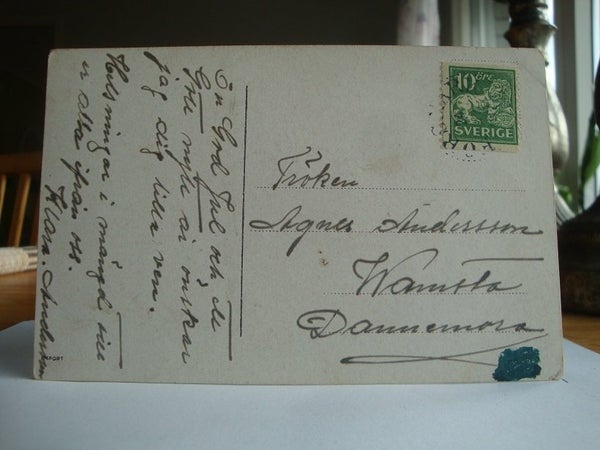 En God Jul och Ett
Gott nytt år önskar
jag dig lilla ven.
Hälsningar i mängd till
er alla ifrån oss.
Klara Andersson
10 ÖRE
SVERIGE
Fröken
Agnes Andersson
Wamsta
Dannemora